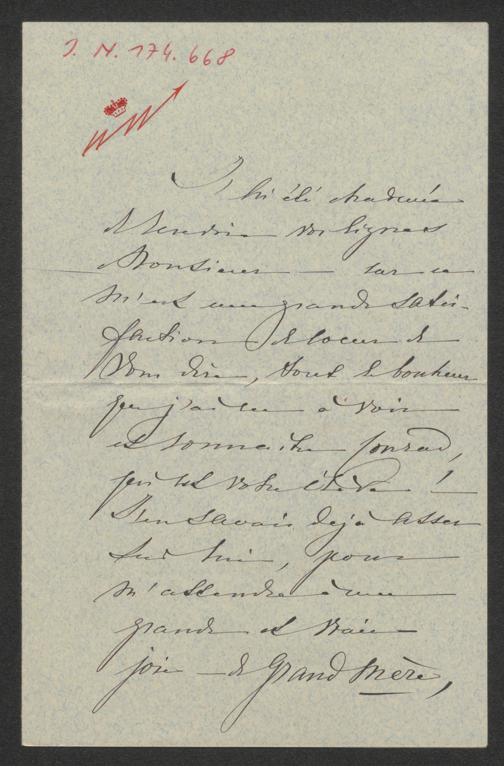 J. N. 174.668
J'ai été charmée
d'entendre vos lignes
Monsieur — car ce
m'est une grande satis-
faction de coeur de
Vous dire, tout le bonheur
que j'ai eu à voir
et connaître Conrad,
qui est votre élève !
J'en savais dejà assez
sur lui, pour
m'attendre à une
grande et vraie
joie — de Grand Mère,